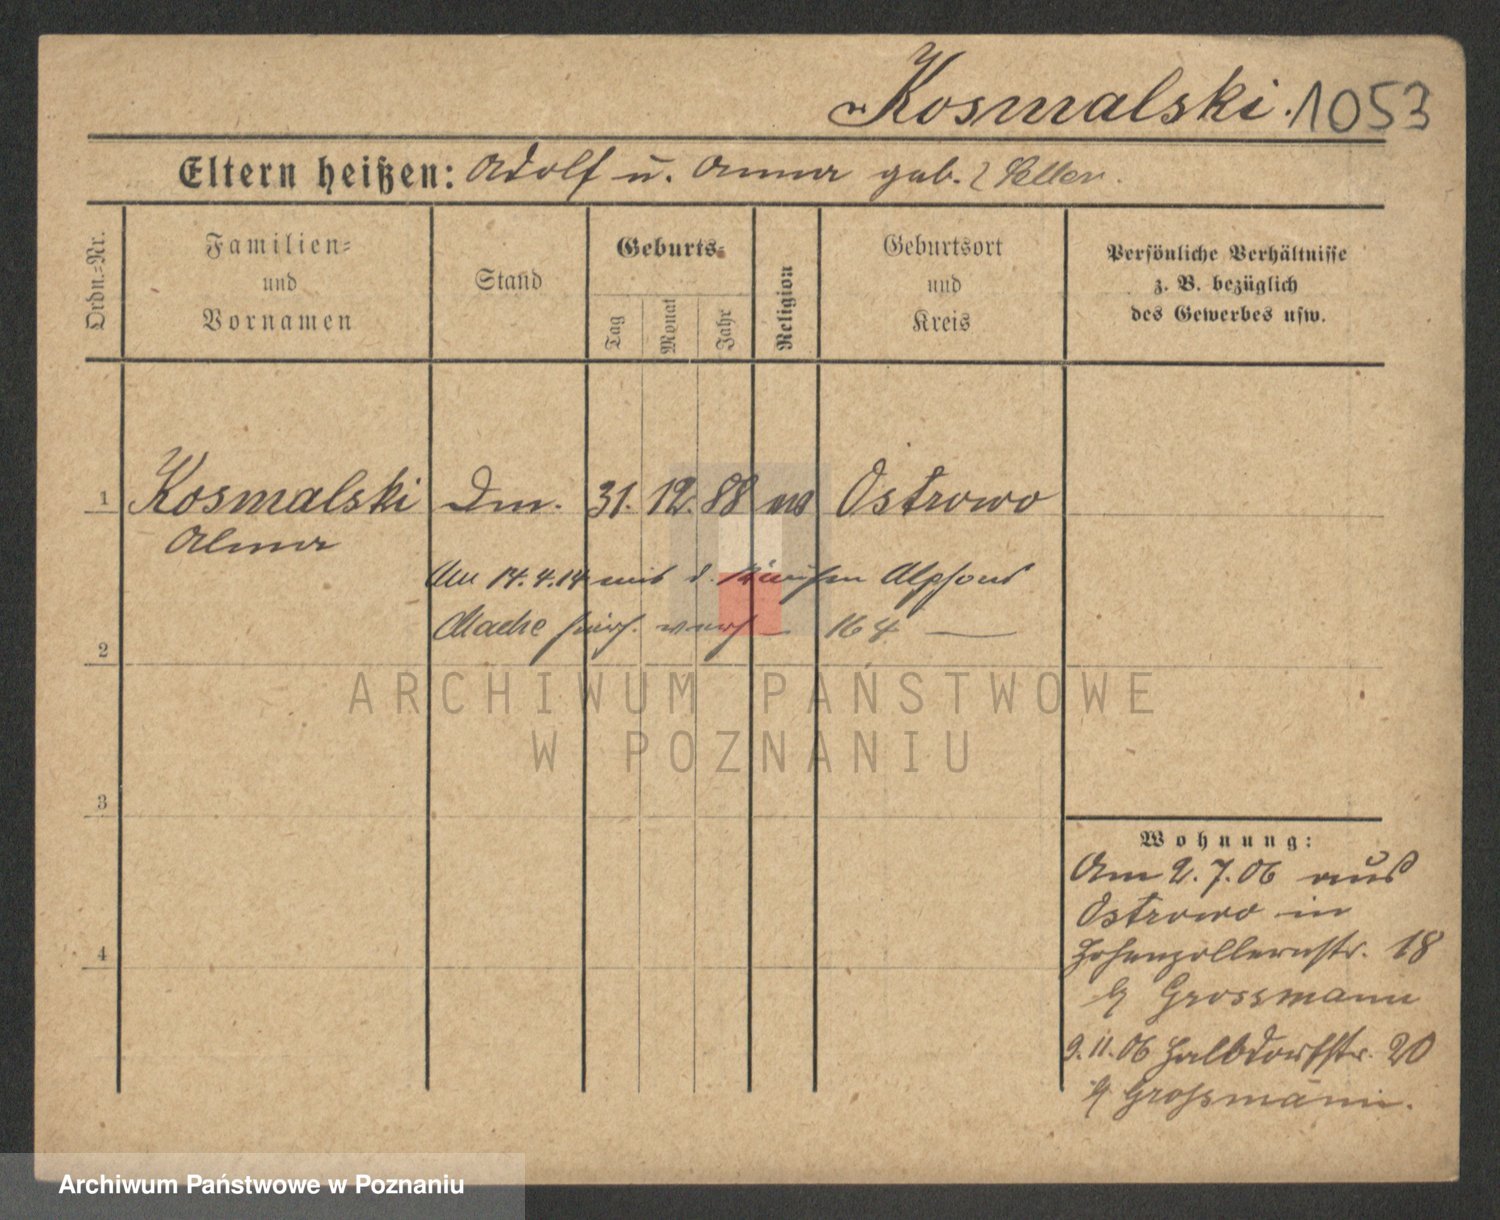 Kosmalski. 1053
Eltern heißen: Adolf u. Anna geb.
Ordn.=Nr.
Familien=
und
Vornamen
Stand
Geburts=
Tag
Monat
Jahr
Religion
Geburtsort
und
Kreis
Persönliche Verhältnisse
z. B. bezüglich
des Gewerbes usw.
1 Kosmalski 31. 12. 88 Ostrowo
Alma
Am 14.4.14 mit d. Alfons
164
2
ARCHIWUM PAŃSTWOWE
W POZNANIU
3
4
Wohnung:
Am 2.7.06 aus
Ostrowo in
Hohenzollernstr. 18
Grossmann
9.11.06 Halbdorfstr. 20
Großmann.
Archiwum Państwowe w Poznaniu